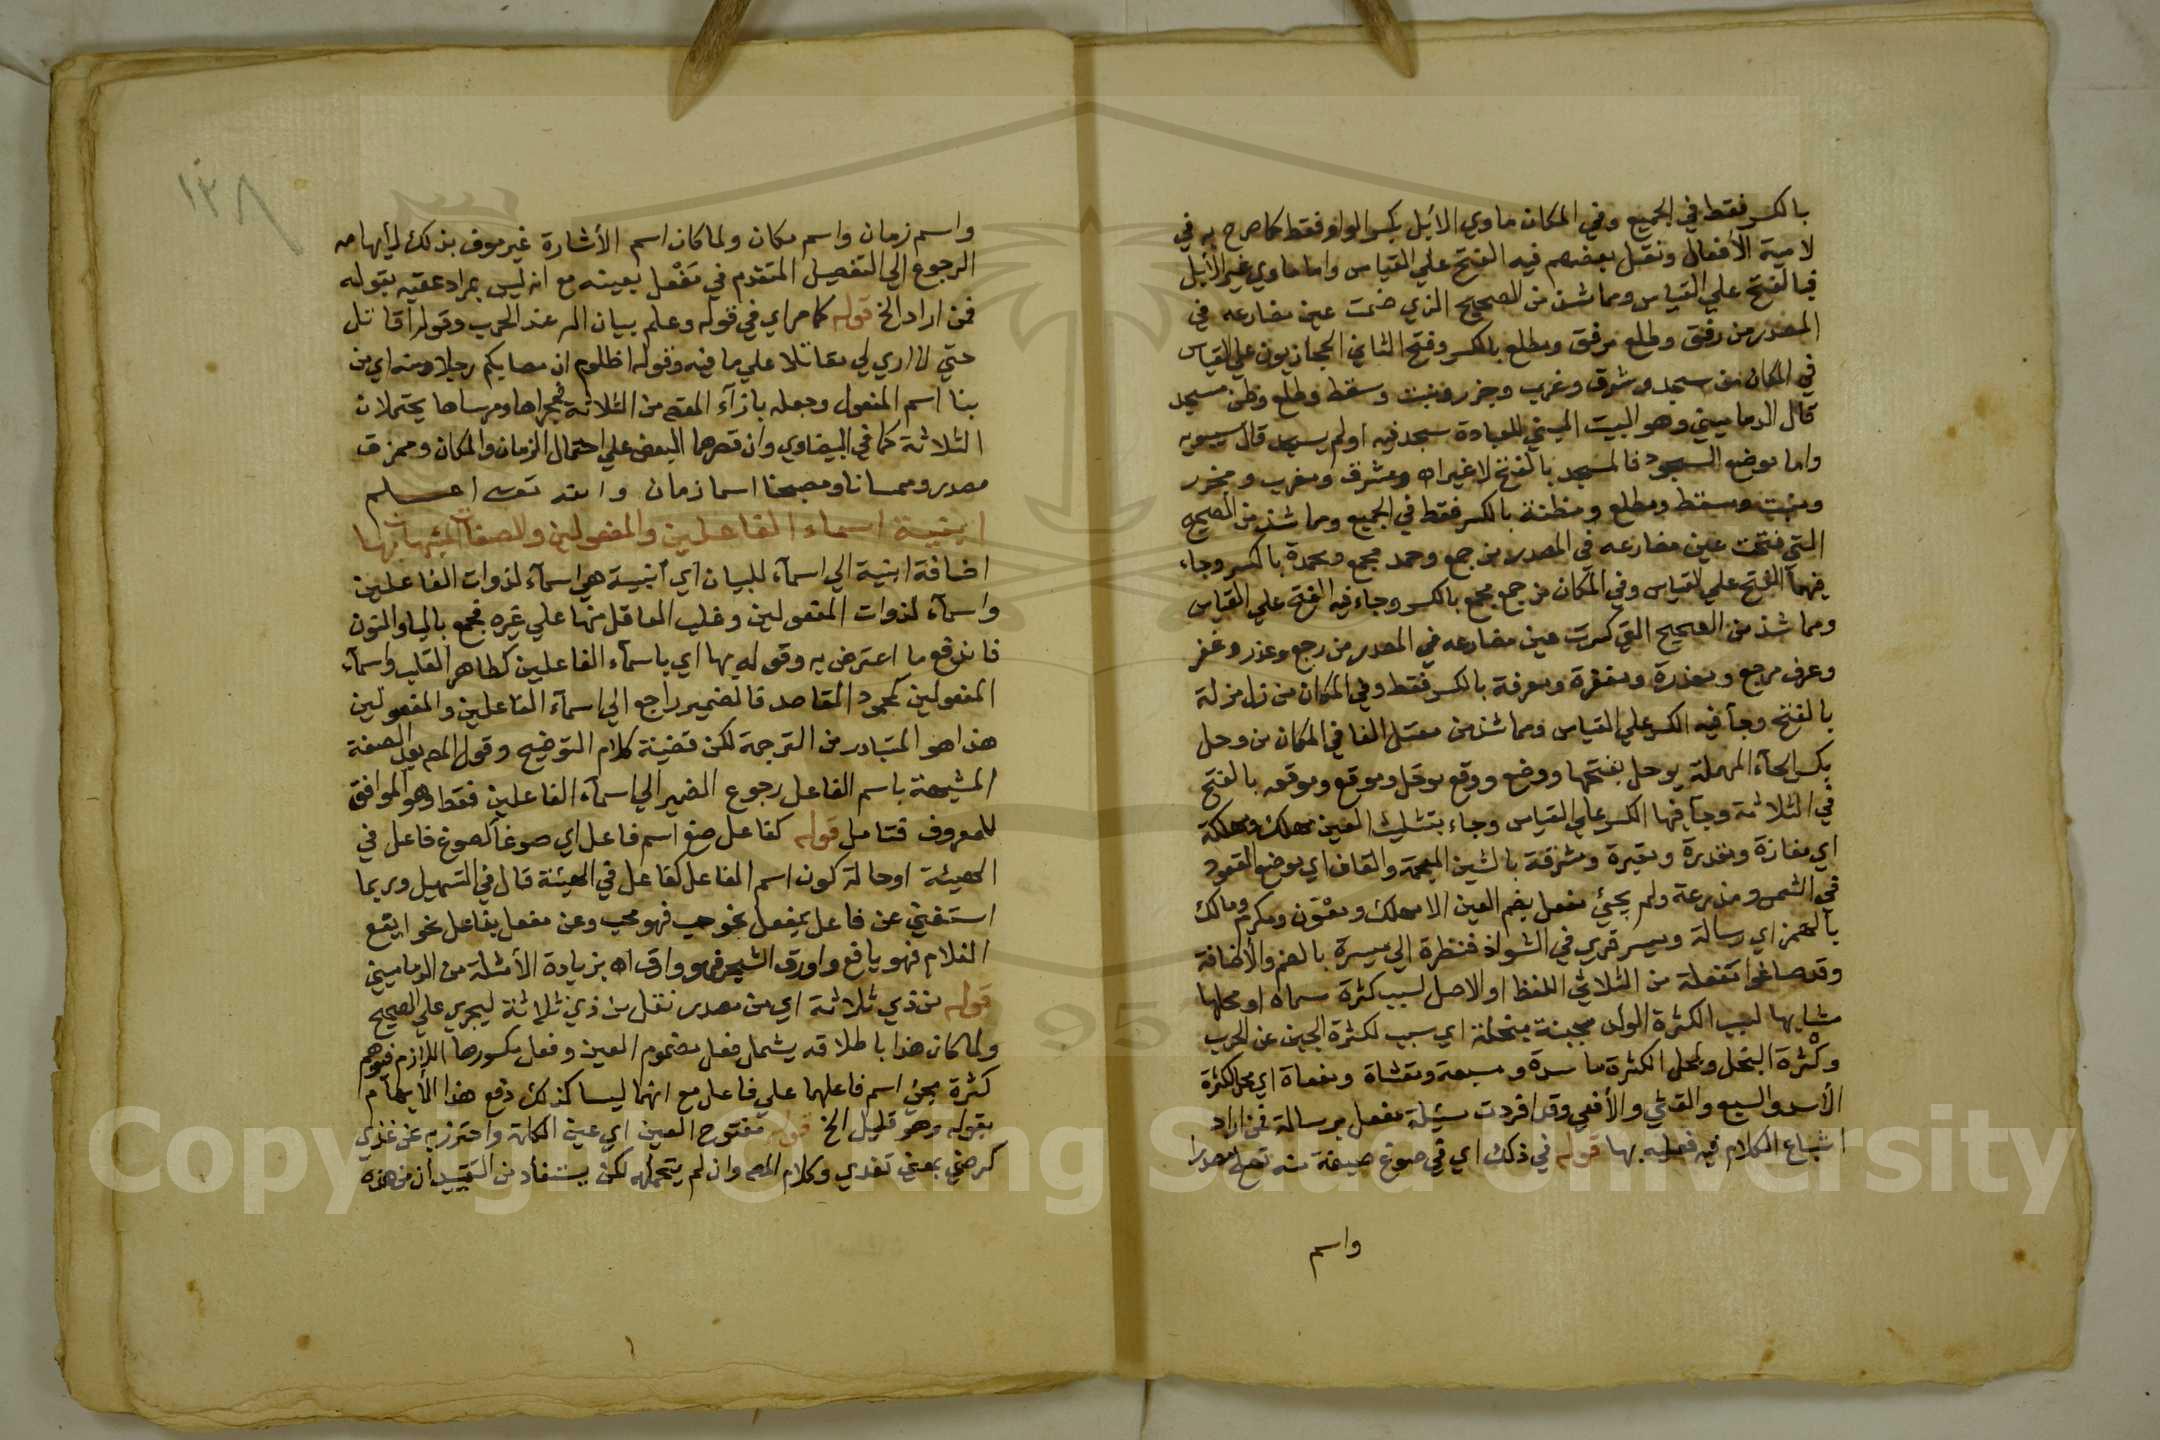 بالكسر فقط في الجميع وفي المكان ماوي الابل بكسر الواو فقط كما صرح به في
لامية الأفعال ونقل بعضهم فيه الفتح علي القياس واما ماوي غير الابل
فبالفتح علي القياس ومما شذ من الصحيح الذي ضمت عين مضارعه في
المصدر من رفق وطلع مرفق ومطلع بالكسر وفتح الثاني الحجازيون علي القياس
في المكان من سجد وشرق وغرب وجزر ونبت وسقط وطلع وظن مسجد
قال الدماميني وهو البيت المبني للعبادة سجد فيه اولم يسجد قال سيبويه
واما موضع السجود فالمسجد بالفتح لا غير اه ومشرق ومغرب ومجزر
ومنبت ومسقط ومطلع ومظنة بالكسر فقط في الجميع ومما شذ من الصحيح
التي فتحت عين مضارعه في المصدر من جمع وحمد مجمع ومحمدة بالكسر وجاء
فيهما الفتح علي القياس وفي المكان من جمع مجمع بالكسر وجاء فيه الفتح علي القياس
ومما شذ من الصحيح التي كسرت عين مضارعه في المصدر من رجع وعذر وغفر
وعرف مرجع ومعذرة ومغفرة ومعرفة بالكسر فقط وفي المكان من زل مزلة
بالفتح وجآ فيه الكسر علي القياس ومما شذ من معتل الفا في المكان من وحل
بكسر الحآء المهملة موحل بفتحها ووضع ووقع موحل وموقع وموقعه بالفتح
في الثلاثة وجآ فيها الكسر علي القياس وجاء بتثليث العين مهلك ومهلكة
اي مفازة ومقدرة ومقبرة ومشرقة بالشين المعجمة والقاف اي موضع القعود
في الشمس ومزرعة ولم يجئ مفعل بضم العين الا مهلك ومعون ومكرم ومالك
بالهمز اي رسالة وميسر قري في الشواذ فنظرة الي ميسرة بالضم والاضافة
وقد صاغوا مفعلة من الثلاثي اللفظ او الاصل لسبب كثرة مسماه او محلها
مثالها لسبب الكثرة الولد مجبنة مبخلة اي سبب لكثرة الجبن عن الحرب
وكثرة البخل ولمحل الكثرة ماسدة ومسبعة ومقثاة ومفعاة اي محل لكثرة
الأسد والسبع والقثي والأفعي وقد افردت مسئلة مفعل برسالة فمن اراد
اشباع الكلام فيه فعليه بها قوله في ذلك اي في صوغ صيغة منه تصلح مصدرا
واسم
١٣٨
واسم زمان واسم مكان ولما كان اسم الأشارة غير موف بذلك لإيهامه
الرجوع الي التفصيل المتقدم في مَفْعل بعينه مع انه ليس بمراد عقبه بقوله
فمن اراد الخ قوله كما مر اي في قوله وعلم بيان المرء عند الحرب وقوله اقاتل
حتي لا اري لي مقاتلا علي ما فيه وقوله اظلوم ان مصابكم رجلا ومنه اي من
بنا اسم المفعول وجعله بازآء المعني من الثلاثة فمجراها ومرساها يحتملان
الثلاثة كما في البيضاوي وان قصرهما البعض علي احتمال الزمان والمكان وممزق
مصدر وممسانا ومصبحنا اسما زمان والله تعالى اعلم
ابنية اسماء الفاعلين والمفعولين والصفات المشبهات بها
اضافة ابنية الي اسمآء للبيان اي أبنية هي اسمآء لذوات الفاعلين
واسمآء لذوات المفعولين وغلب العاقل منها علي غيره فجمع باليا والنون
فاندفع ما اعترض به وقوله بها اي باسمآء الفاعلين كطاهر القلب واسمآء
المفعولين كمحمود المقاصد فالضمير راجع الي اسمآء الفاعلين والمفعولين
هذا هو المتبادر من الترجمة لكن قضية كلام التوضيح وقول المص بعد الصفة
المشبهة باسم الفاعل رجوع الضمير الي اسمآء الفاعلين فقط وهو الموافق
للمعروف فتامل قوله كفاعل صغ اسم فاعل اي صوغا كصوغ فاعل في
الهيئة او حالة كون اسم الفاعل كفاعل في الهيئة قال في التسهيل وربما
استغني عن فاعل بمفعل نحو حب فهو محب وعن مفعل بفاعل نحو ايفع
الغلام فهو يافع واورق الشجر فهو وارق اه بزيادة الأمثلة من الدماميني
قوله من ذي ثلاثة اي من مصدر نقل من ذي ثلاثة ليجري علي الصحيح
ولما كان هذا باطلاقه يشمل فعل مضموم العين وفعل مكسورها اللازم فيوهم
كثرة مجئ اسم فاعلهما علي فاعل مع انهما ليسا كذلك دفع هذا الأيهام
بقوله وهو قليل الخ قوله مفتوح العين اي عين الكلمة واحترز به عن غذي
كرضي بمعني تغذي وكلام المص وان لم يتحمله لكن يستفاد من التقييد ان من هذه